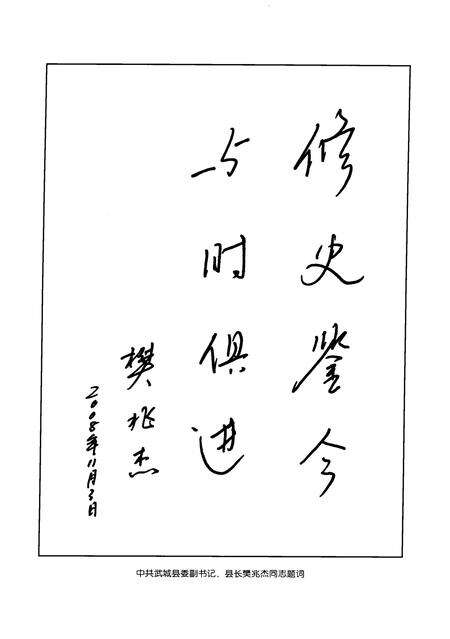 修史鉴今
与时俱进
樊兆杰
2008年11月3日
中共武城县委副书记、县长樊兆杰同志题词